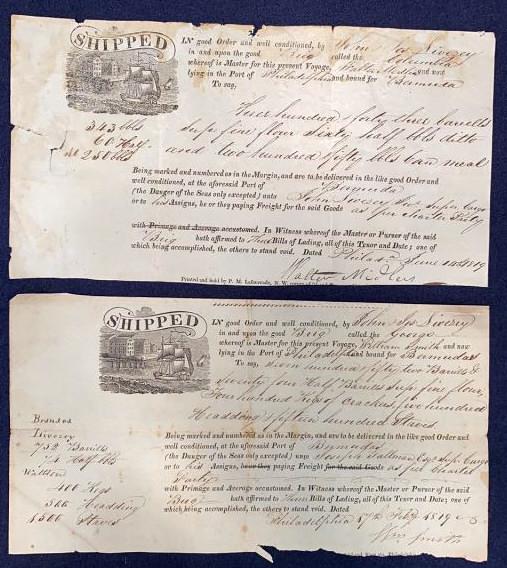 SHIPPED
IN good Order and well conditioned, by John Jos Livezey
in and upon the good Brig called the Columbia
whereof is Master for this present Voyage, Walter and now
lying in the Port of Philadelphia and bound for Bermuda
To say,
Three hundred & forty three barrells
343 bbls
supr fine flour Sixty half bbls ditto
60 Half
250 bbls
and two hundred fifty bbls Corn meal
Being marked and numbered as in the Margin, and are to be delivered in the like good Order and
well conditioned, at the aforesaid Port of Bermuda
(the Danger of the Seas only excepted) unto John Livezey Super Cargo
or to his Assigns, he or they paying Freight for the said Goods as per charter Party
with Primage and Average accustomed. In Witness whereof the Master or Purser of the said
Brig hath affirmed to Three Bills of Lading, all of this Tenor and Date; one of
which being accomplished, the others to stand void. Dated Philada June 1819
Walter
Printed and sold by P. M. Lafourcade, N. W.
SHIPPED
IN good Order and well conditioned, by John Jos Livezey
in and upon the good Brig called the George
whereof is Master for this present Voyage, William Smith and now
lying in the Port of Philadelphia and bound for Bermudas
To say, Seven hundred fifty two Barrills &
Seventy four Half Barrills Supr fine flour
Four hundred Kegs of crackers, five hundred
Headdons & fifteen hundred Staves
Livezey
752 Barrills
74 Half bbls
400 Kegs
500 Headding
1500 Staves
Being marked and numbered as in the Margin, and are to be delivered in the like good Order and
well conditioned, at the aforesaid Port of Bermudas
(the Danger of the Seas only excepted) unto Joseph Tallman Esq Supr Cargo
or to his Assigns, he or they paying Freight for the said Goods as per Charter
Party
with Primage and Average accustomed. In Witness whereof the Master or Purser of the said
Brig hath affirmed to Three Bills of Lading, all of this Tenor and Date; one of
which being accomplished, the others to stand void. Dated
Philadelphia Feby 1819
Wm Smith